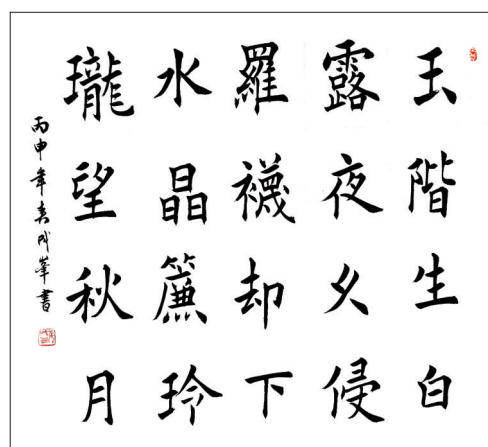 玉階生白
露夜久侵
羅襪却下
水晶簾玲
瓏望秋月
丙申年袁成峯書